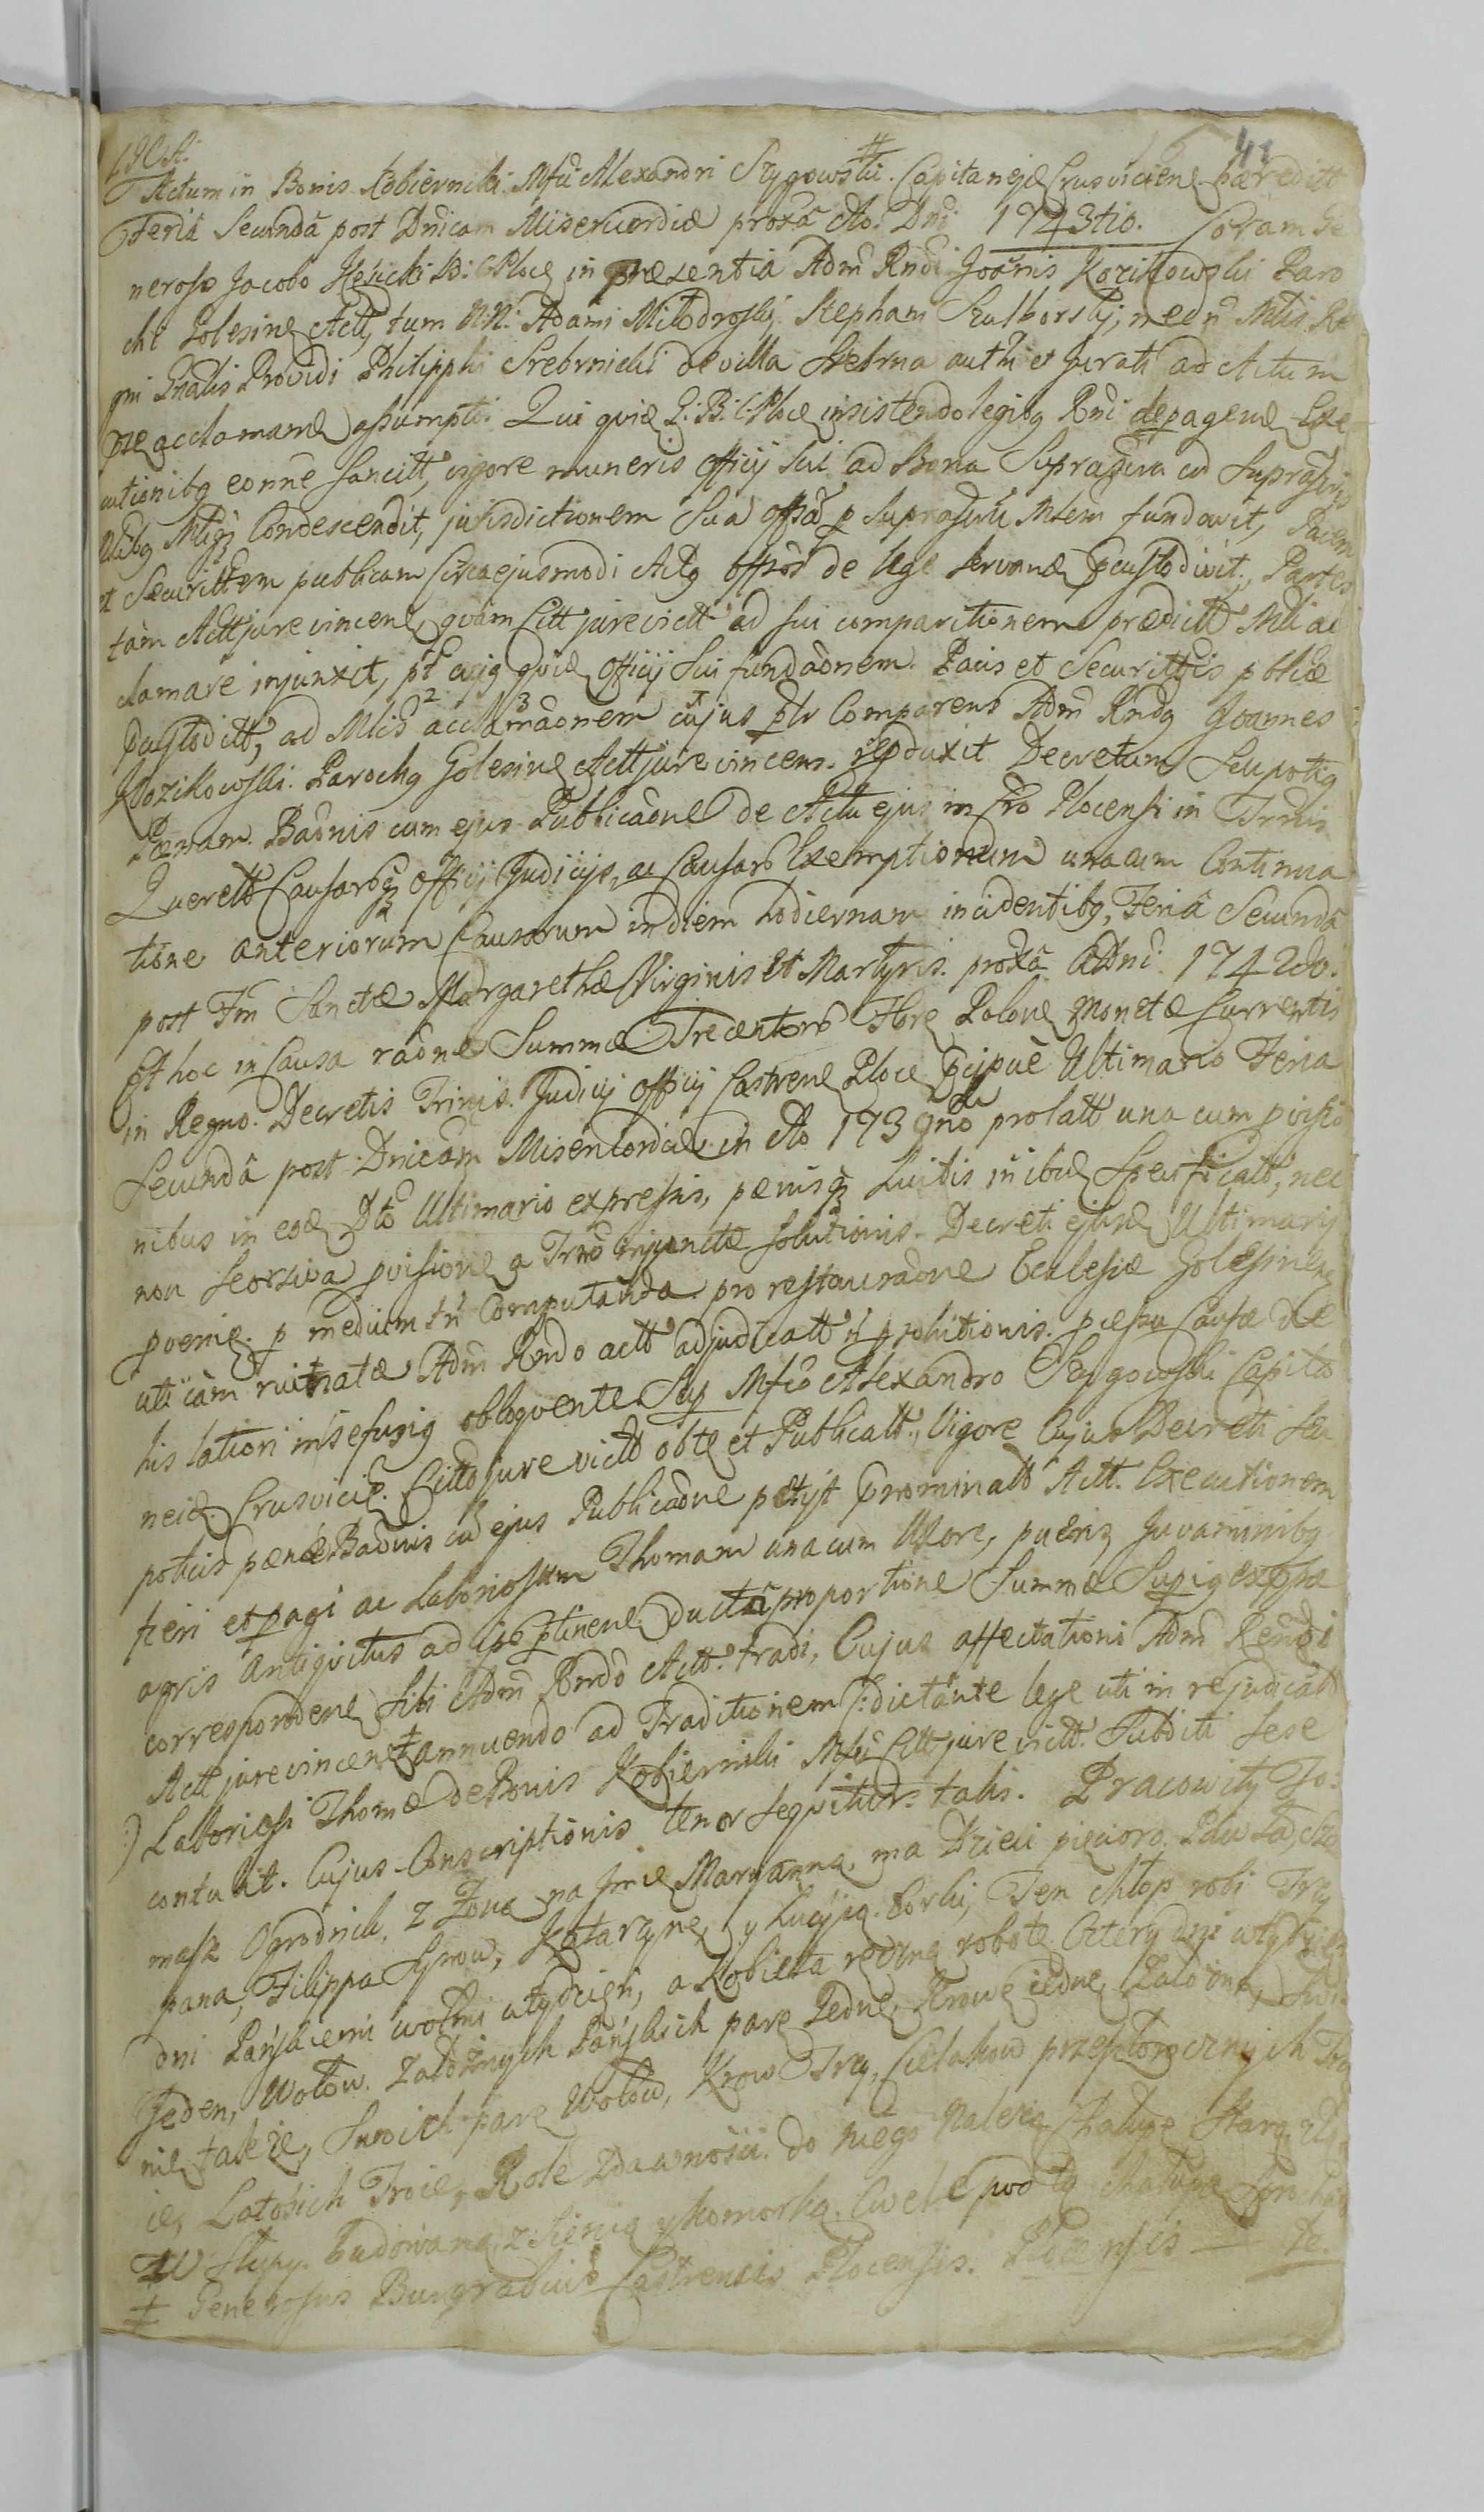 41
Actum in Bonis Kobierniki Mfci Alexandri Szygowski Capitaneidæ Crusvicien hæreditt
Feria Secunda post Dnicam Misericordiæ proxa Ao Dni 1743tio. Coram Ge
neroso Jacobo B: C: Ploc in præsentia Adm Rndi Joannis Kozikowski Paro
chi Golesine Actt, tum NN: Adami Milodroski, Stephani Szulborskij, necn Mlis Re
gni Gnalis Providi Philippi Srebrnicki de villa Srebrna authi et Jurati ad Actum
assumpti. Qui quid G: B: C: Ploc insistendo legibg Rni de pagene Exe
cutionibg eonne sancitt, vigore muneris officij sui ad Bona Suprascta cu suprascris
Nlibg Mliqz Condescendit, jurisdictionem Sua offsa p suprascru Mlem fundavit, Pacem
et Securittem publicam circa ejusmodi Actg offsos de lege servand pcustodivit, Partes
tam Actt jure vincene, quam Citt jure victt ad sui comparitionem prædictt Mli ac
clamare injunxit, pt cujg quid officij sui fundaonem Pacis et Securittis pblicæ
pcustoditt, ad Mlis 2 acclamaonem 3 cujus ptr Comparens Adm Rndg Joannes
Kozikowski Parochg Golesine Actt jure vincens reproduxit Decretum Seu potig
Pænam Baonis cum ejus Publicaone de Actu ejus in Cro Plocensi in Trnis
Querett Causarogz officij Judicijs, ac Causaro Exemptionum unacum Continua
tione anteriorum Causarum in diem hodiernam incidentibg, Feria Secunda
post Fm Sanctæ Margarethæ Virginis et Martyris proxa A Dni 1742do.
Et hoc in Causa raone Summæ Trecentoro Flore Polone monetæ Currentis
in Regno. Decretis Trinis Judicij officij Castrene Ploce pcipue Ultimario Feria
Secunda post Dnicam Misericordiæ in Ao 1739no prolatt una cum pvisio
nibus in eod Dto Ultimario expressis, pænisqz Luitis in ibid Specificatt, nec
non seorsiva pvisione a Trno injunctæ solutionis Decreti ejusd Ultimarij
poenie p medium tn Computanda pro restauraone Ecclesiæ Golesinene
uti iam ruinatæ Adm Rndo actt adjudicatt
his lationi insefusig obloquente Sup Mfco Alexandro Szygowski Capita
neid Crusvicie. Citto jure victt obte et Publicatt, Vigore Cujus Decreti seu
potius pænæ Baonis cu ejus Publicaone petijt pnominatt Actt Executionem
fieri et pagi ac Laboriosum Thomam unacum Uxore, pueris, Juvaminibg
agris antiquitus ad ipso ptinene ducta proportione Summæ Supig expssæ
correspondene sibi Adm Rndo Actt tradi, Cujus affectationi Adm Rendi
Actt jure vincent annuendo ad Traditionem (: dictante lege uti in rejudicatt
:) Laboriosi Thomæ de Bonis Kobierniki Mfci Citt jure victt Subditi sese
contulit. Cujus Conscriptionis tenor sequitur talis. Pracowity To:
masz Ogrodnik, z Zoną na Jmie Maryanna, ma Dzieci pięcioro Pawła, Szcze
pana, Filippa Synow, Katarzynę, y Łucyią Corki, Ten chłop robi Trzy
dni Pańskiemi wołmi w tydzień, a Kobieta ręczną robotę Cztery dni w tydzień
Jeden, Wołow Załoznych Pańskich parę Jednę, Krowę iednę Załozną, Swi
nię takze, Swoich parę Wołow, Krow Trzy, Cielakow przeszłorocznych Tro
ie, Latosich Troie, Role Zdawnosci do niego nalezą, Chałupę Starą
W Słupy Budowaną, z Sienią y komorką,
‡ Generosus Burgrabius Castrensis Plocensis. Plocensis — te.